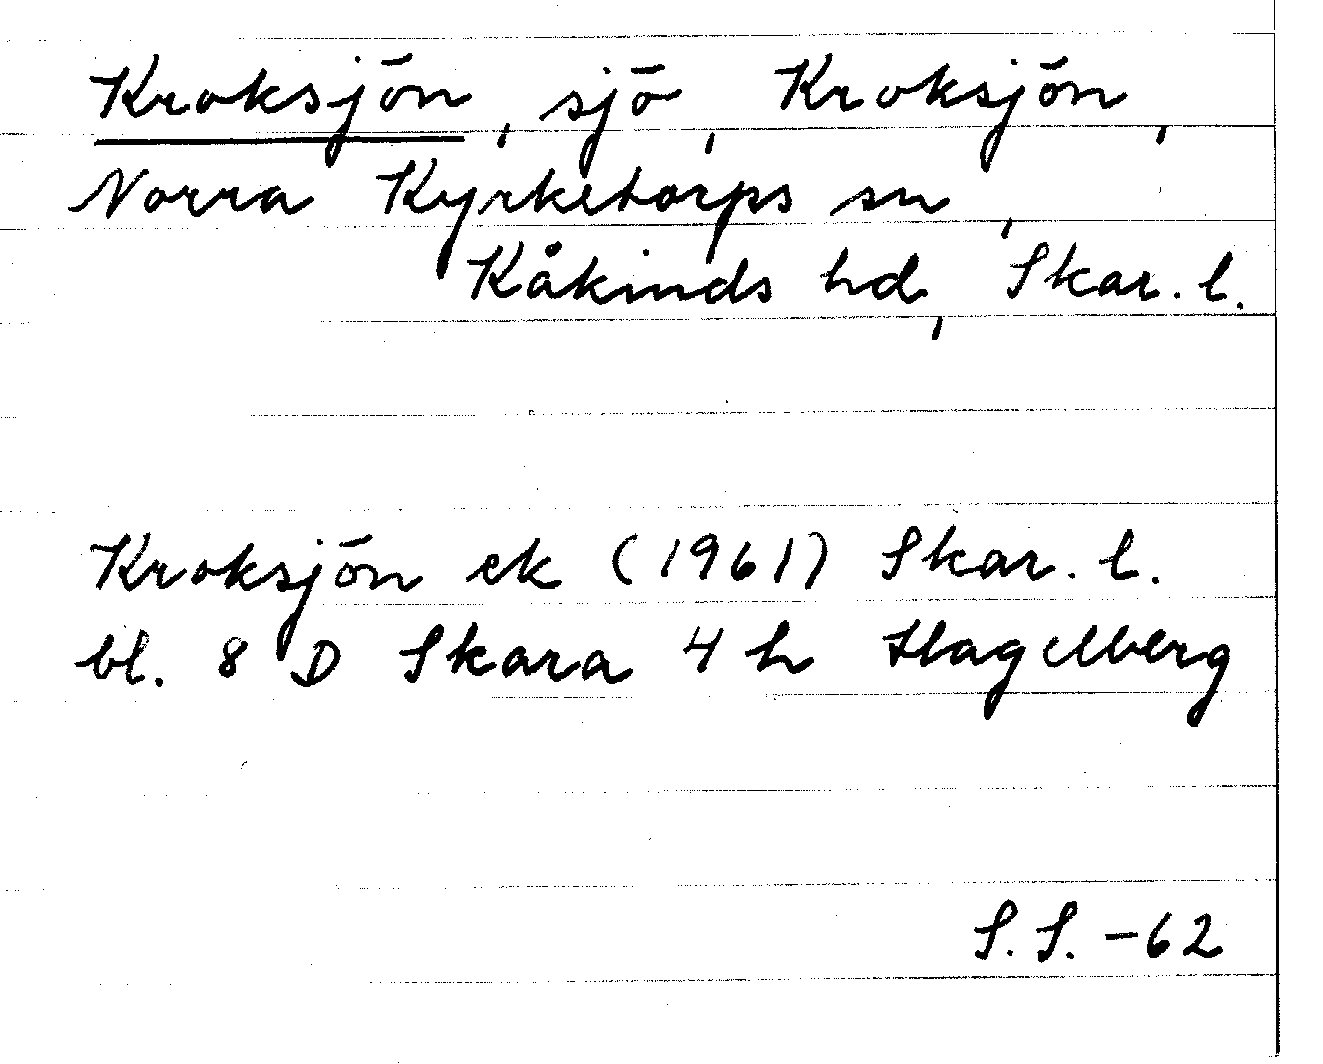 Kroksjön, sjö, Kroksjön,
Norra Kyrketorps sn,
Kåkinds hd, Skar. l.
Kroksjön ek (1961) Skar. l.
bl. 8 D Skara 4 h Hagelberg
S.S. -62